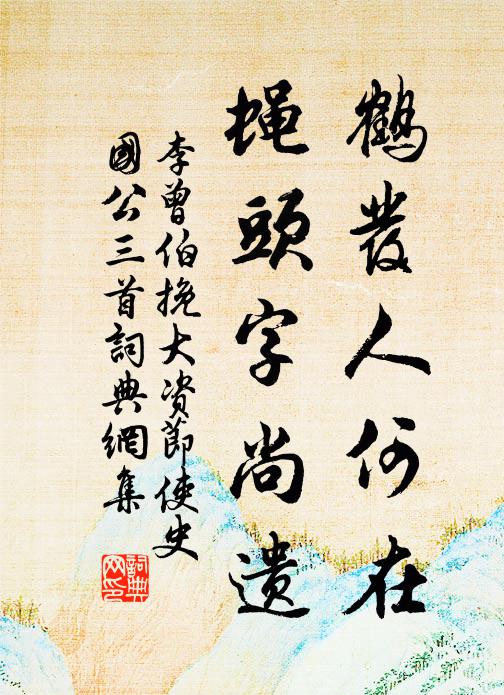 鶴發人何在
蝇頭字尚遗
李曾伯挽大资節使史
國公三首詞典網集
詞典
网印